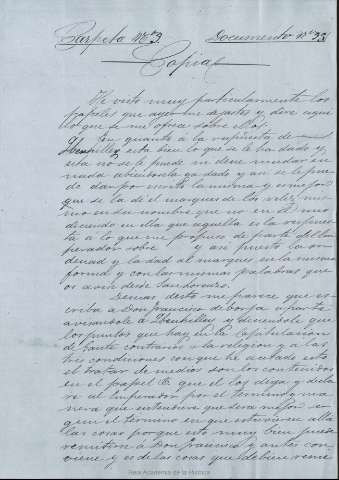 Carpeta nº 3. Documento nº 33
Copias
He visto muy particularmente los
papeles que ayer me dejastes y diré aquí
lo que se me ofrece sobre ellos.
En quanto á la respuesta de
está bien lo que se le ha dado y
esta no se le puede ni deve mudar en
nada habiéndola ya dado y así se le pue
de dar por escrito la misma y es mejor
que se la dé el marques de los velez mis
mo en su nombre que no en el mio
diciendo en ella que aquella es la respues
ta á lo que me propuso de parte del Em
perador sobre y así puesto la or
denad y la dad al marques en la misma
forma y con las mismas palabras que
os avisé desde San Lorenzo.
Demas desto me parece que es
criba á Don Francisco de Borja aparte
avisandole á y diciendole que
los puntos que hay en la Capitulacion
de Gante contrarios á la religion y á las
tres condiciones con que he acetado esto
el tratar de medios son los contenidos
en el papel C que él los diga y decla
re al Emperador por el termino y ma
nera que entendiere que será mejor se
gun el termino en que estuvieren allá
las cosas porque esto muy bien puede
remitirse á Don Francisco y antes con
viene y es de las cosas que deben remi
Real Academia de la Historia